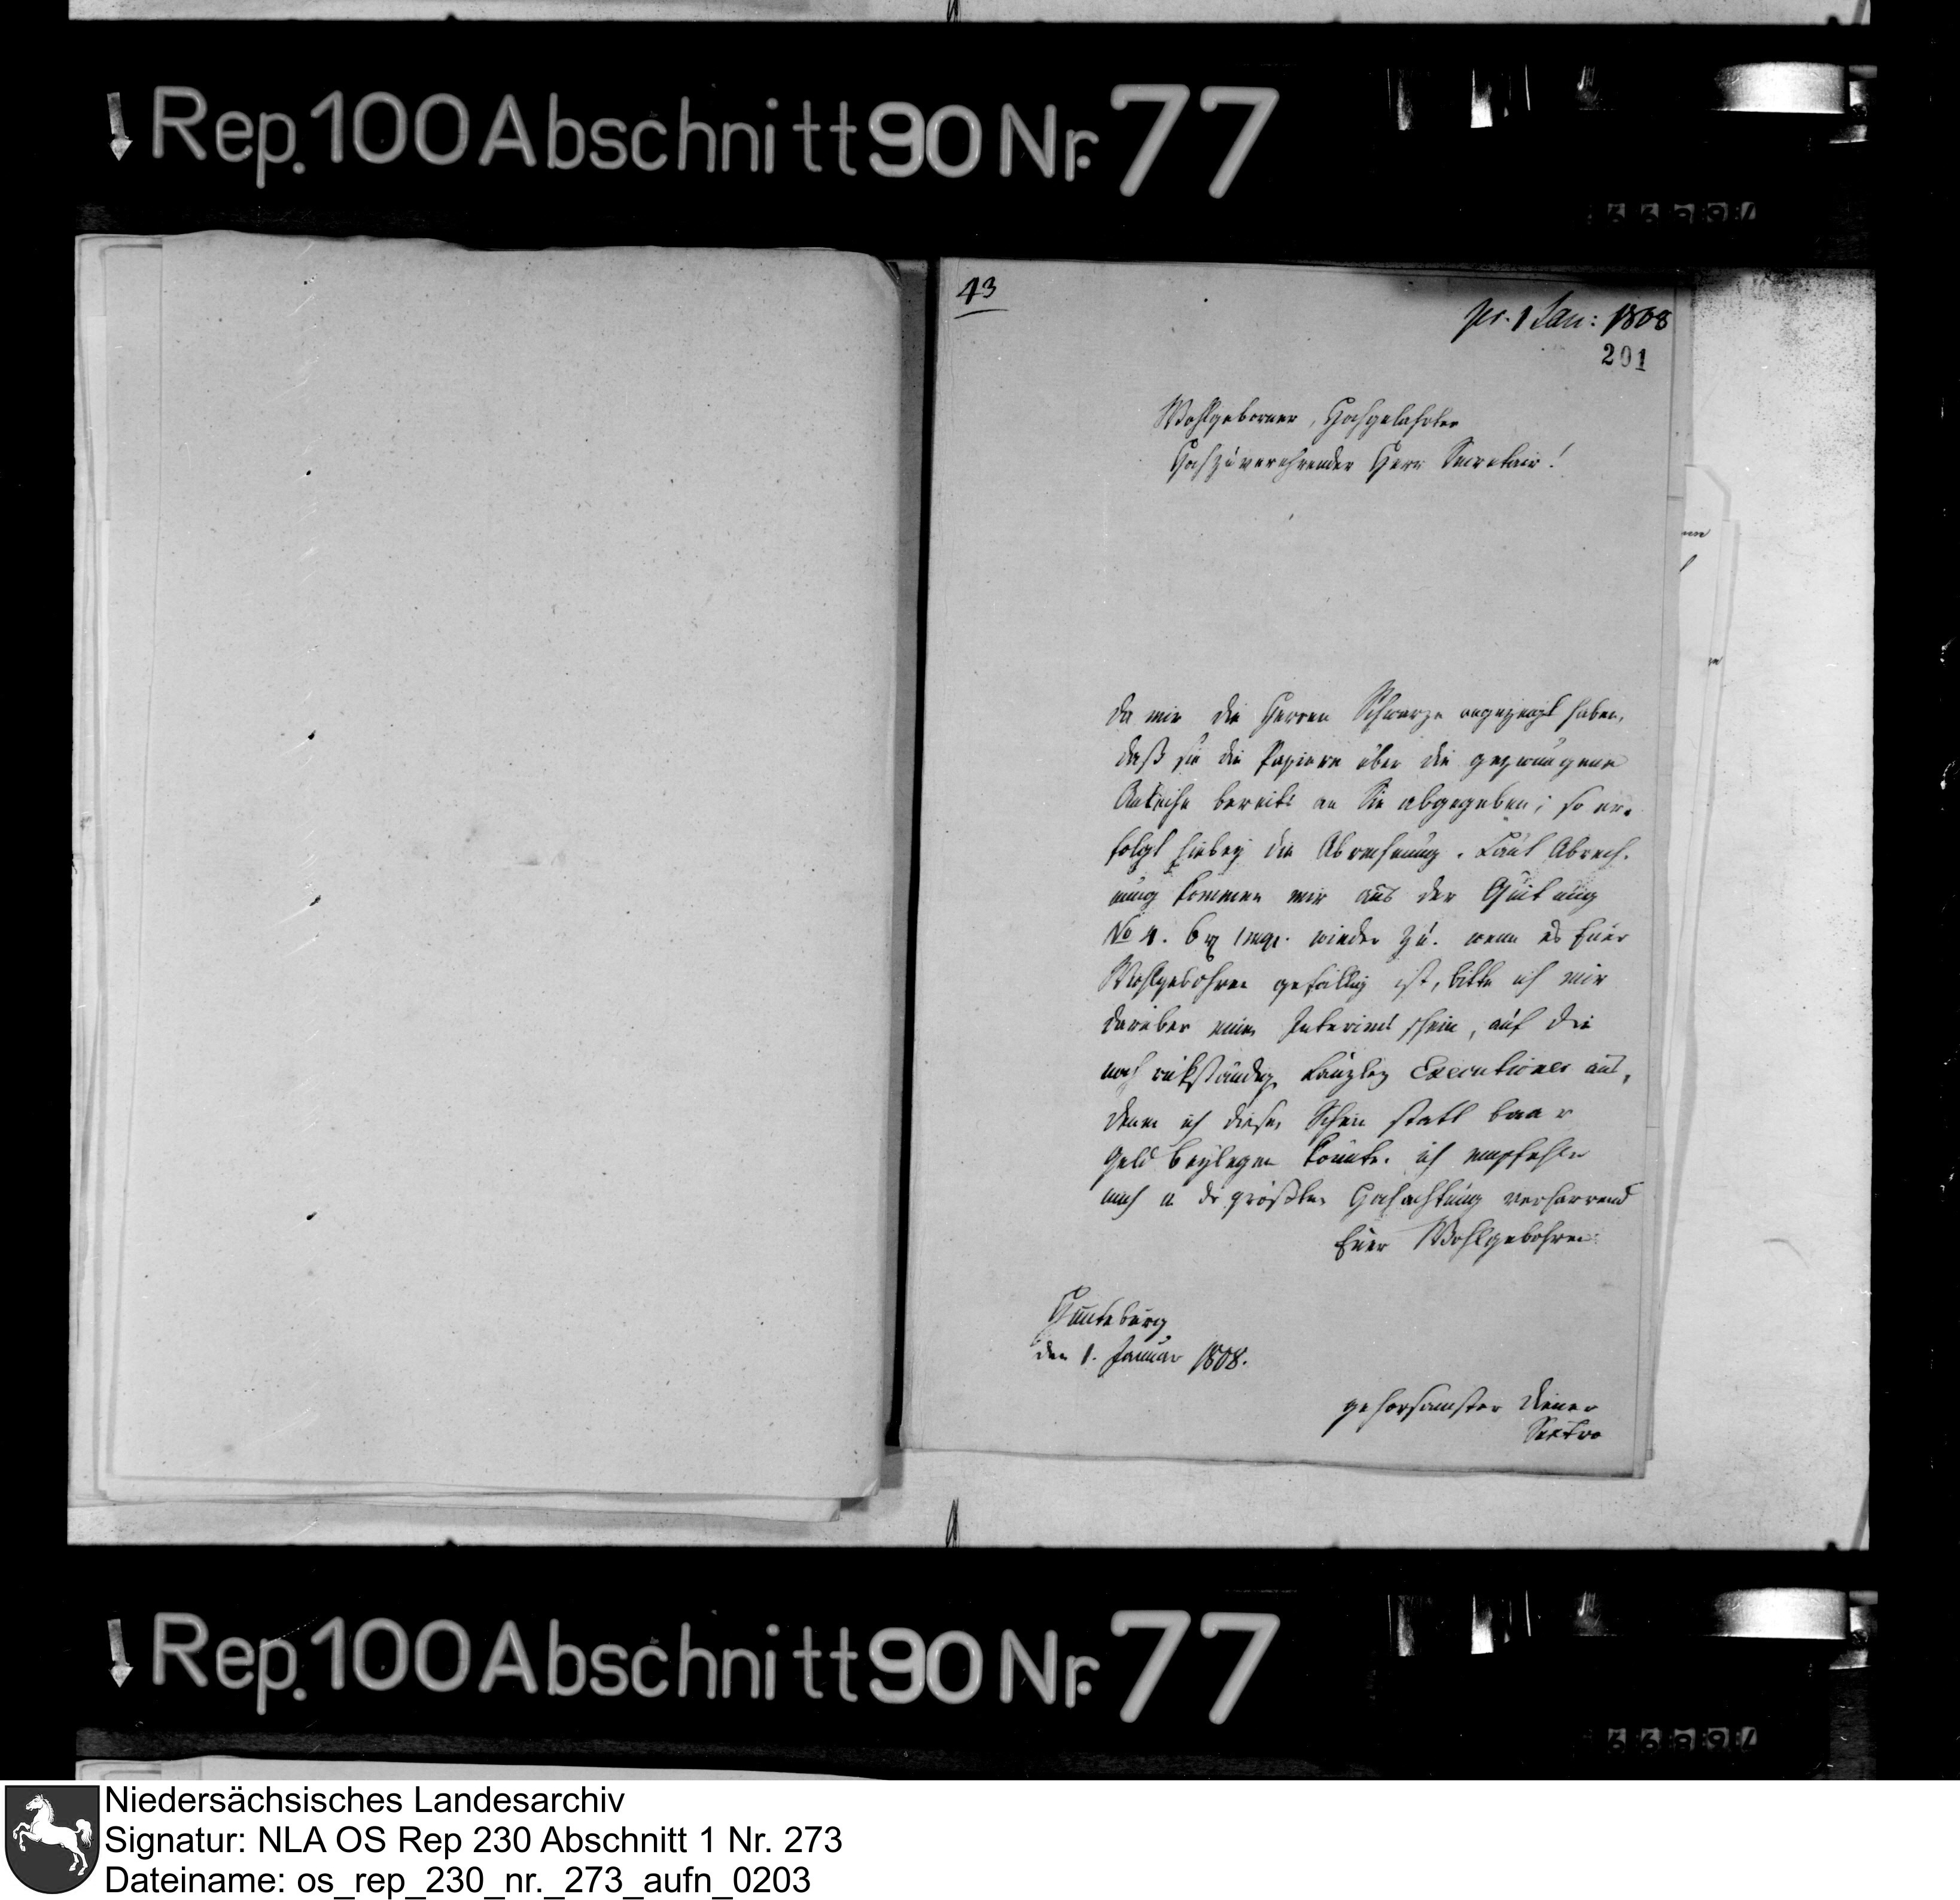 Rep. 100 Abschnitt 90 Nr. 77
43
pr. 1 Jan: 1808
201
Wohlgeborner, Hochgelahrter
Hochzuverehrender Herr Secretair!
Da mir die Herren Schwarze angezeigt haben,
daß sie die Papiere über die gezwungene
Anleihe bereits an Sie abgegeben; so er-
folgt hiebey die Abrechnung. Laut Abrech-
nung kommen mir aus der Quitung
No 4. 6 rt 1 mgr. wieder zu. wenn es Euer
Wohlgebohren gefällig ist, bitte ich mir
darüber einen Interims schein, auf die
noch rükständige Canzley Executiones aus,
denn ich diesen Schein statt baar
Geld beylegen könnte. ich empfehle
mich in der größten Hochachtung verharrend
Euer Wohlgebohren
Hunteburg
den 1. Januar 1808.
gehorsamster Diener
Rep. 100 Abschnitt 90 Nr. 77
Niedersächsisches Landesarchiv
Signatur: NLA OS Rep 230 Abschnitt 1 Nr. 273
Dateiname: os_rep_230_nr._273_aufn_0203